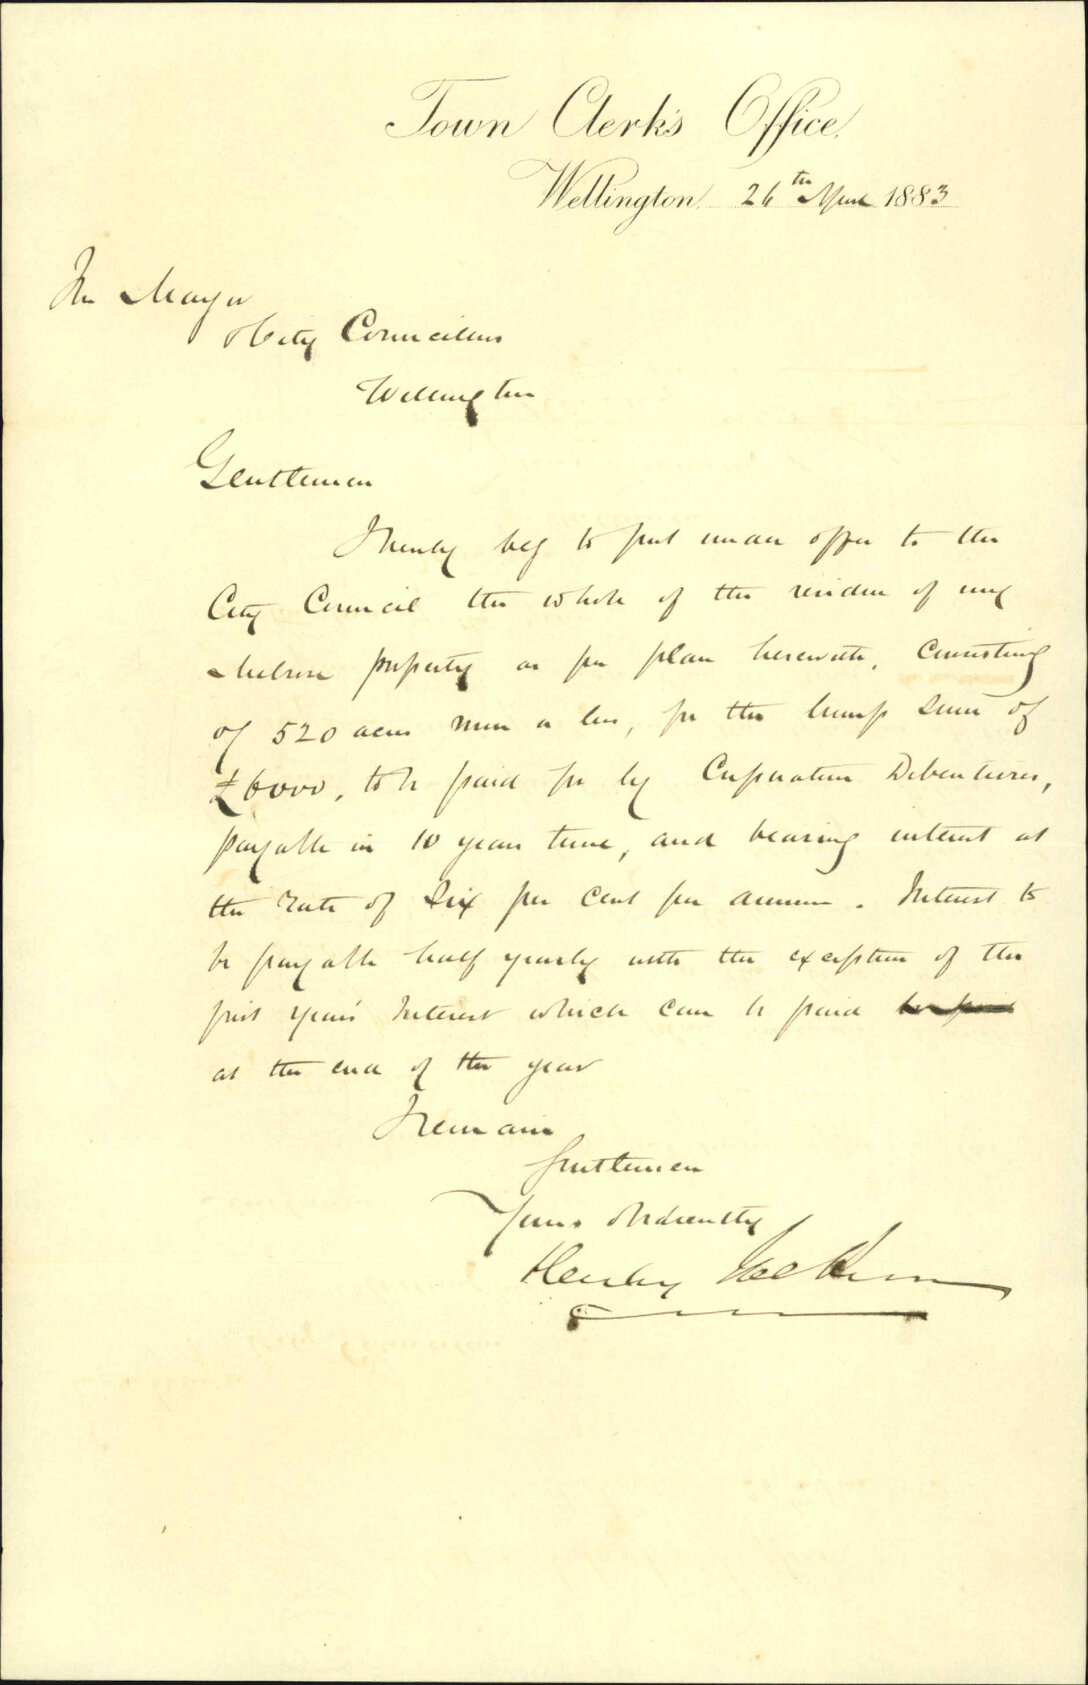 Town Clerk's Office.
Wellington 26th April 1883
The Mayor
& City Councillors
Wellington
Gentlemen
I hereby beg to put under offer to the
City Council the whole of the residue of my
Melrose property as per plan herewith, consisting
of 520 acres more or less, for the lump sum of
£6000, to be paid for by Corporation Debentures,
payable in 10 years time, and bearing interest at
the rate of Six per cent per annum. Interest to
be payable half yearly with the exception of the
first years' Interest which can be paid
at the end of the year
I remain
Gentlemen
Yours obediently